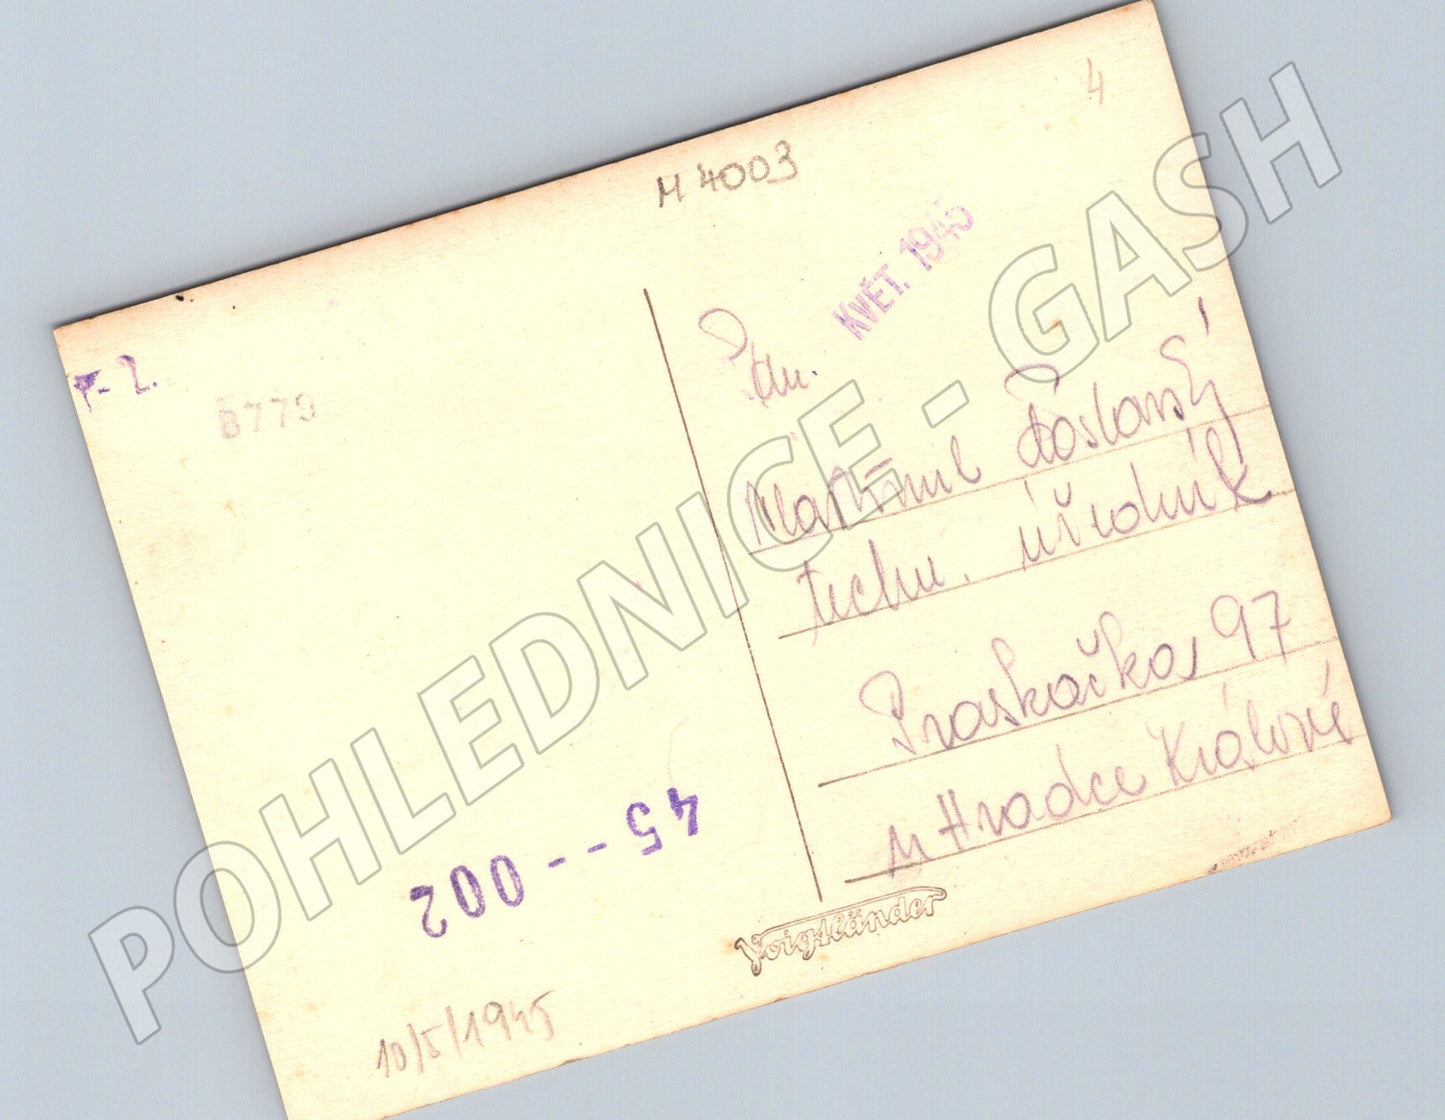 4
M 4003
KVĚT. 1945
P-2.
8779
Pan.
úředník
techn.
Praskačka 97
u Hradce Králové
45--002
Voigtländer
10/5/1945
POHLEDNICE - GASH